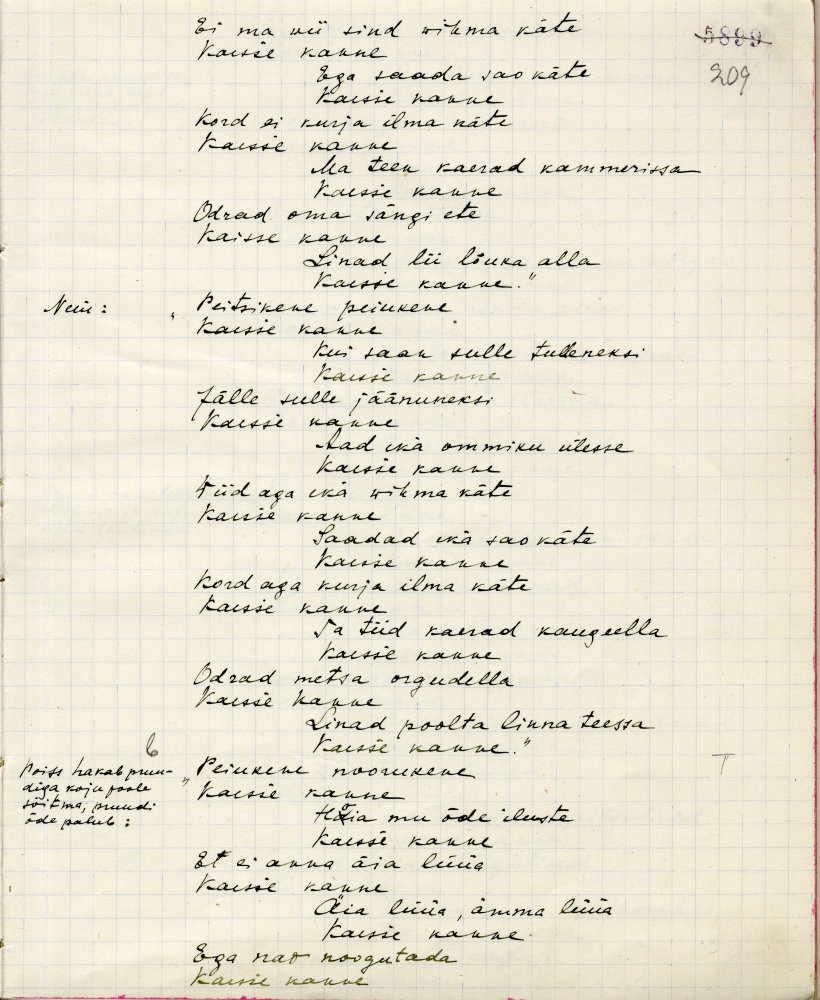 5899
209
Ei ma vii sind wihma käte
Kaisse kanne
Ega saada sao käte
Kaisse kanne
Kord ei kurja ilma käte
Kaisse kanne
Ma teen kaerad kammerissa
Kaisse kanne
Odrad oma sängi ete
Kaisse kanne
Linad lii lõuka alla
Kaisse kanne."
Neiu: „Peitsikene peiukene
Kaisse kanne
Kui saan sulle tulleneksi
Kaisse kanne
Jälle sulle jäänuneksi
Kaisse kanne
Aad ikä ommiku ülesse
Kaisse kanne
Viid aga ikä wihma käte
Kaisse kanne
Saadad ikä sao käte
Kaisse kanne
Kord aga kurja ilma käte
Kaisse kanne
Sa tiid kaerad kaugeella
Kaisse kanne
Odrad metsa orgudella
Kaisse kanne
Linad poolta linna teessa
Kaisse kanne."
6
Poiss hakab pruudiga koju poole sõitma, pruudi õde palub:
„Peiukene noorukene
Kaisse kanne
Hoia mu õde iluste
Kaisse kanne
Et ei anna äia lüüa
Kaisse kanne
Äia lüüa, ämma lüüa
Kaisse kanne
Ega nao noogutada
Kaisse kanne